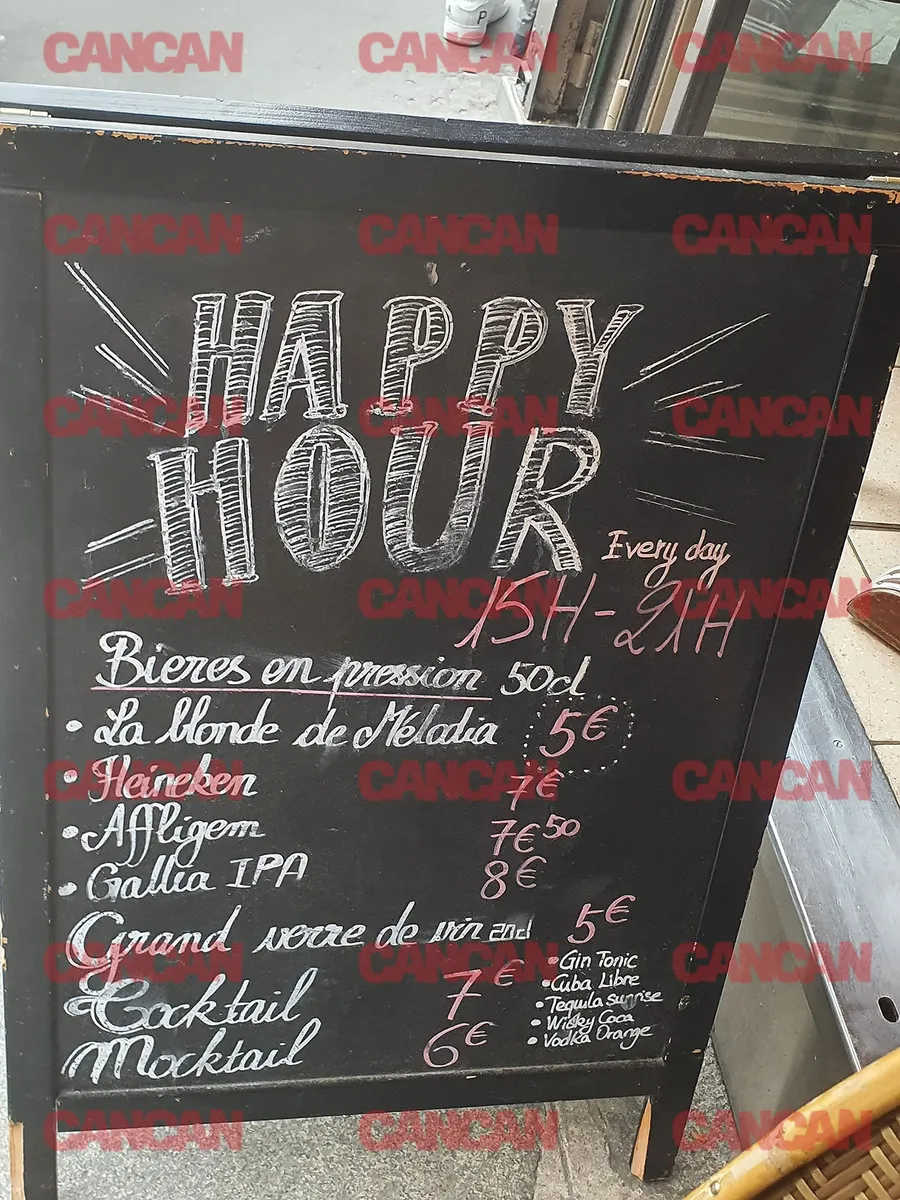 CANCAN CANCAN CANCAN
CANCAN CANCAN CANCAN
CANCAN CANCAN CANCAN
CANCAN CANCAN CANCAN
CANCAN CANCAN CANCAN
CANCAN CANCAN CANCAN
CANCAN CANCAN CANCAN
P
HAPPY
HOUR
Every day
15H-21H
Bieres en pression 50cl
• La blonde de Mélodia 5€
• Heineken 7€
• Affligem 7€50
• Gallia IPA 8€
Grand verre de vin 20cl 5€
Cocktail 7€
• Gin Tonic
• Cuba Libre
• Tequila sunrise
• Wisky Coca
• Vodka Orange
Mocktail 6€